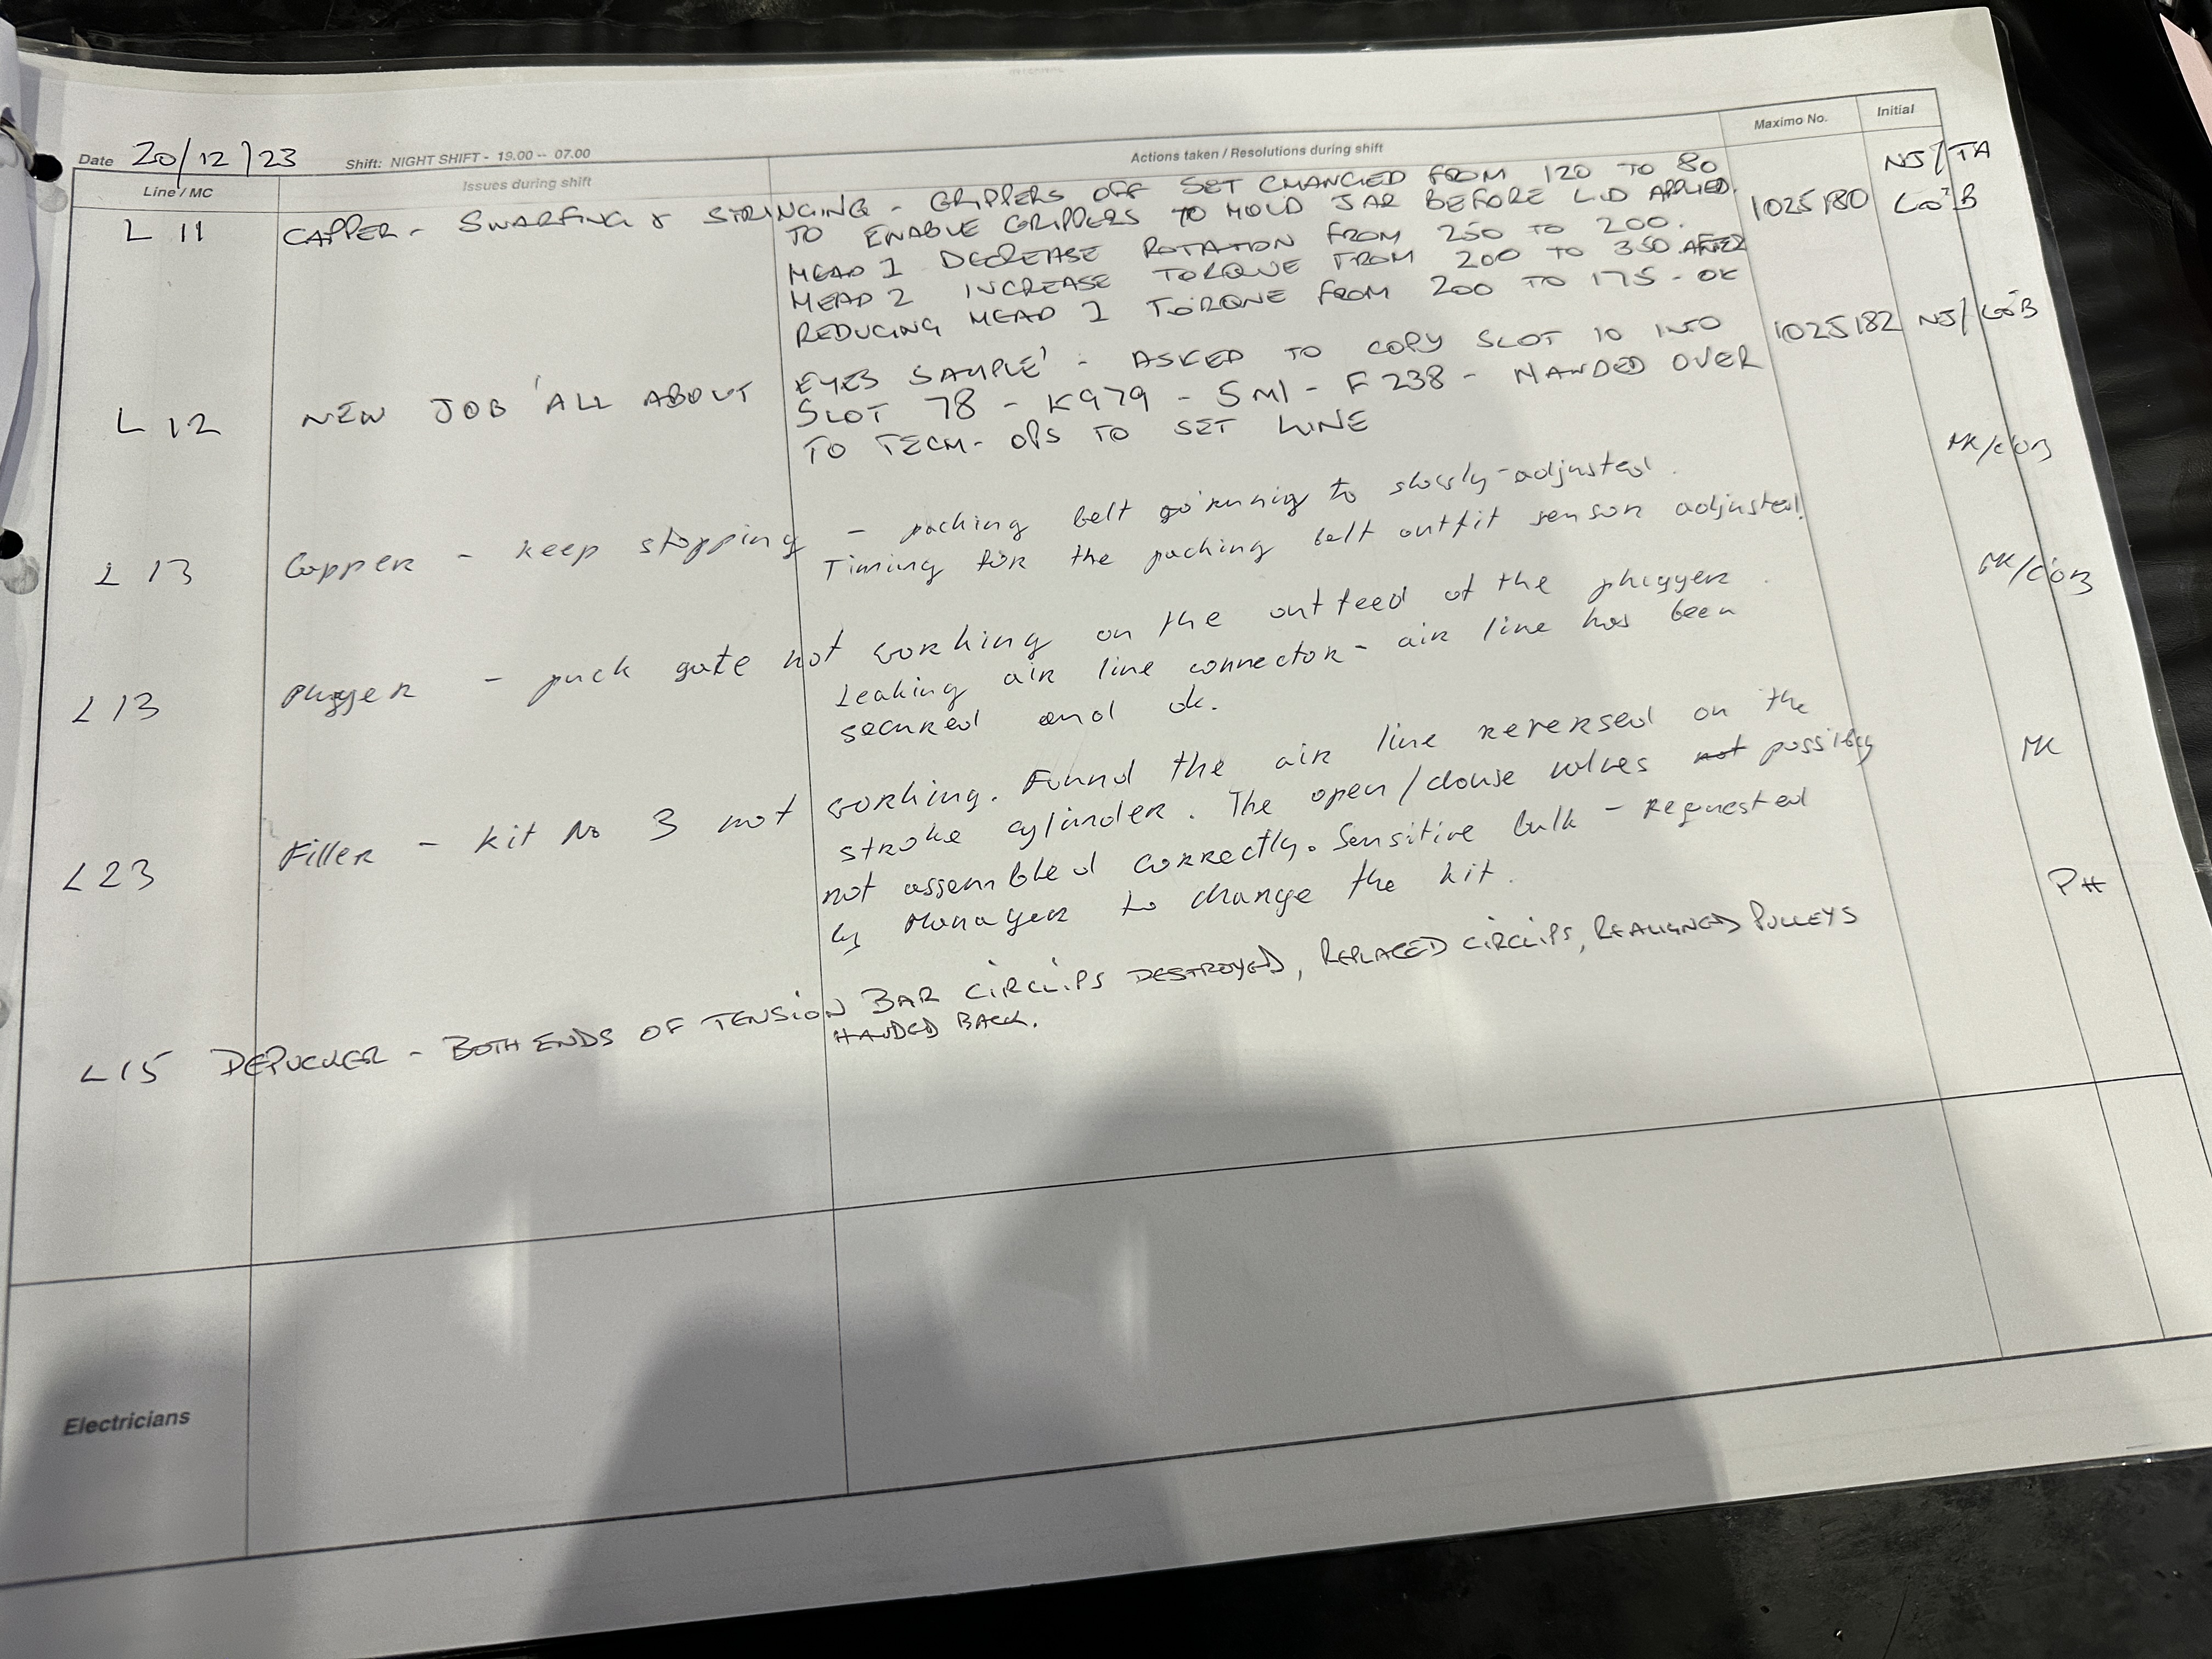 Date 20/12/23 Shift: NIGHT SHIFT - 19.00 -- 07.00
Line / MC Issues during shift Actions taken / Resolutions during shift Maximo No. Initial
L 11 CAPPER - SWARFING & STRINGING - GRIPPERS OFF SET CHANGED FROM 120 TO 80 NJ/TA
TO ENABLE GRIPPERS TO HOLD JAR BEFORE LID APPLIED. 1025180 LO'B
HEAD 1 DECREASE ROTATION FROM 250 TO 200.
HEAD 2 INCREASE TORQUE FROM 200 TO 350 AFTER
REDUCING HEAD 1 TORQUE FROM 200 TO 175 - OK
L 12 NEW JOB 'ALL ABOUT EYES SAMPLE' - ASKED TO COPY SLOT 10 INTO 1025182 NJ/LO'B
SLOT 78 - K979 - 5ml - F238 - HANDED OVER
TO TECH-OPS TO SET LINE
L 13 Capper - keep stopping - packing belt running to slowly - adjusted. MK/COB
Timing for the packing belt outfit sensor adjusted.
L 13 plugger - puck gate not working on the outfeed of the plugger. MK/COB
Leaking air line connector - air line has been
secured and ok.
L23 Filler - kit No 3 not working. Found the air line reversed on the MK
stroke cylinder. The open/clouse valves not possibly
not assembled correctly. Sensitive bulk - Requested
by Manager to change the kit.
L15 DEPUCKER - BOTH ENDS OF TENSION BAR CIRCLIPS DESTROYED, REPLACED CIRCLIPS, REALIGNED PULLEYS PH
HANDED BACK.
Electricians